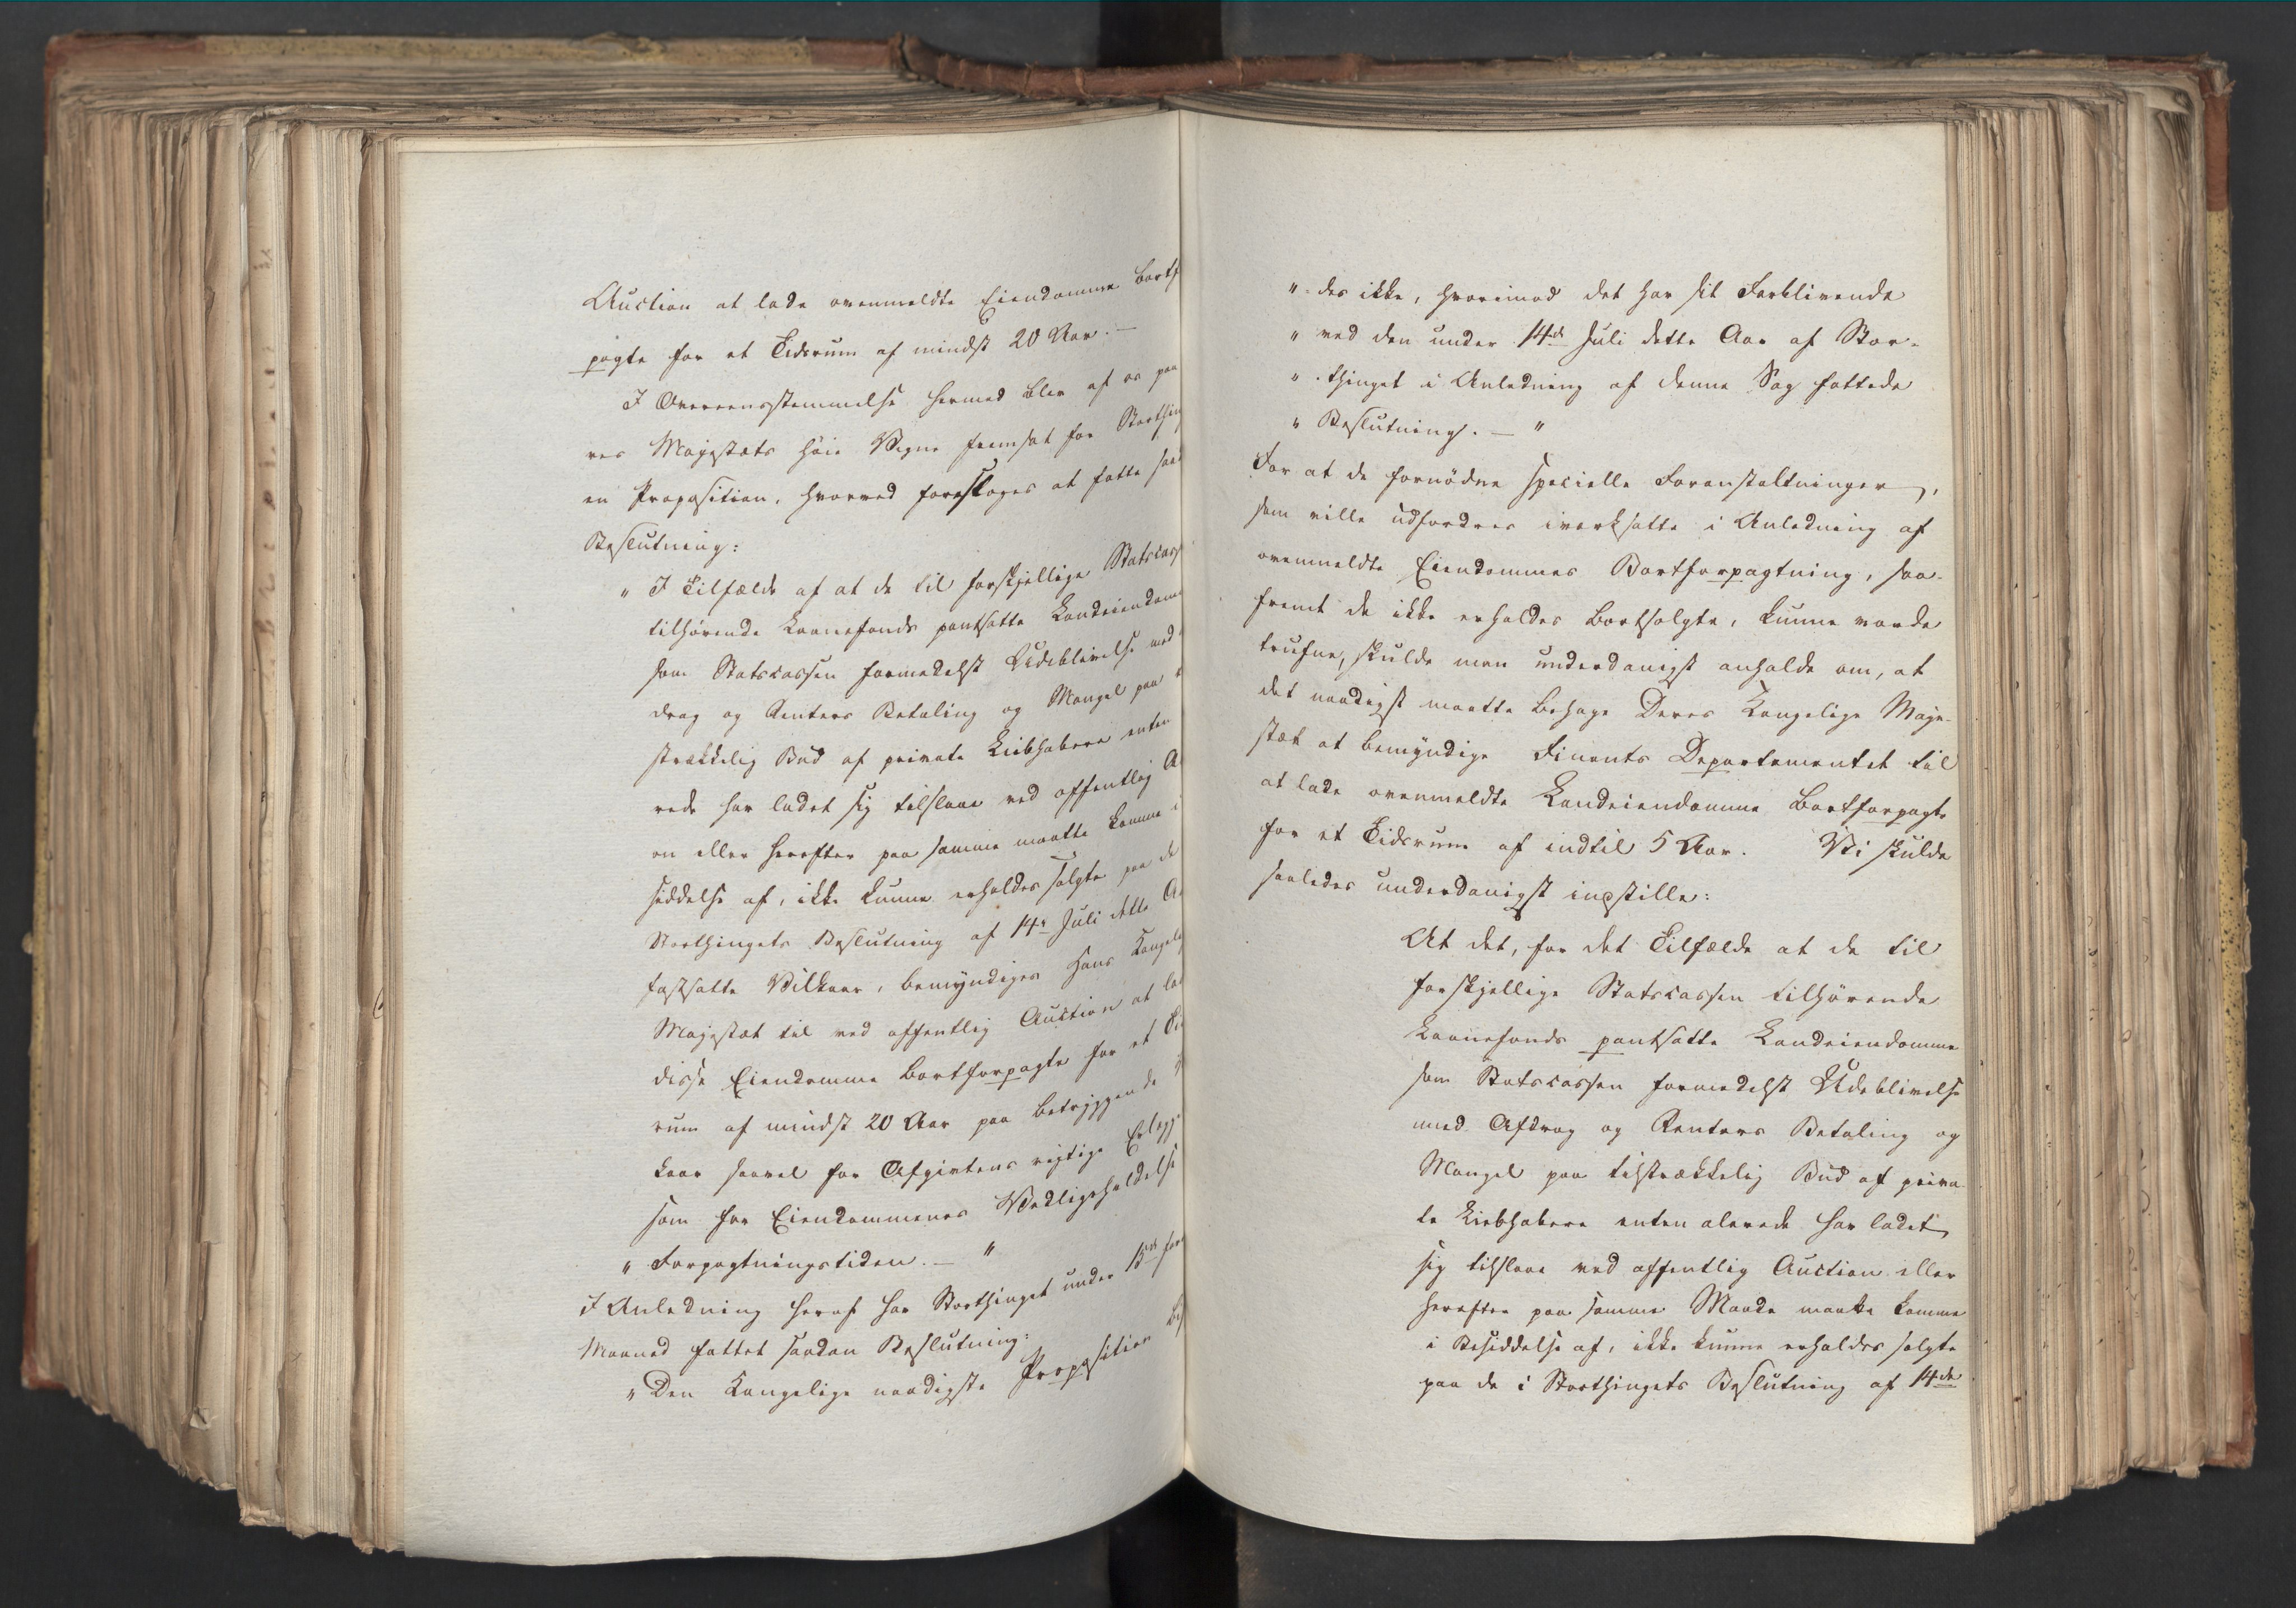 Auction at lade ovenmeldte Eiendomme bortf
pagte for et Tidsrum af mindst 20 Aar. —
I Overeensstemmelse hermed blev af os paa
res Majestæts høie Vegne fremsat for Storthin
en Proposition, hvorved foresloges at fatte saad
Beslutning:
" I Tilfælde af at de til forskjellige Statscass
tilhørende Laanefonds pantsatte Landeiendom
som Statscassen formedelst Udeblivelse med
drag og Renters Betaling og Mangel paa
strækkelig Bud af private Liebhabere enten
rede har ladet sig tilslaae ved offentlig A
on eller herefter paa samme maatte komme i
siddelse af, ikke kunne erholdes solgte paa de
Storthingets Beslutning af 14de Juli dette A
fastsatte Vilkaar, bemyndiges Hans Kongelig
Majestæt til ved offentlig Auction at lad
disse Eiendomme bortforpagte for et Tid
rum af mindst 20 Aar paa betryggende
kaar saavel for Afgivtens rigtige Erlægge
som for Eiendommenes Vedligeholdelse
" Forpagtningstiden. — "
I Anledning heraf har Storthinget under 15de for
Maaned fattet saadan Beslutning:
" Den Kongelige naadigste Proposition bif
" -des ikke, hvorimod det har sit Forblivende
" ved den under 14de Juli dette Aar af Stor-
" -thinget i Anledning af denne Sag fattede
" Beslutning. — "
For at de fornødne specielle Foranstaltninger,
som ville udfordres iværksatte i Anledning af
ovenmeldte Eiendommes Bortforpagtning, saa-
fremt de ikke erholdes bortsolgte, kunne vorde
trufne, skulde man underdanigst anholde om, at
det naadigst maatte behage Deres Kongelige Maje-
stæt at bemyndige Finants Departementet til
at lade ovenmeldte Landeiendomme bortforpagte
for et Tidsrum af indtil 5 Aar. Vi skulde
saaledes underdanigst indstille:
At det, for det Tilfælde at de til
forskjellige Statscassen tilhørende
Laanefonds pantsatte Landeiendomme
som Statscassen formedelst Udeblivelse
med Afdrag og Renters Betaling og
Mangel paa tilstrækkelig Bud af priva-
te Liebhabere enten alerede har ladet
sig tilslaae ved offentlig Auction eller
herefter paa samme Maade maatte komme
i Besiddelse af, ikke kunne erholdes solgte
paa de i Storthingets Beslutning af 14de